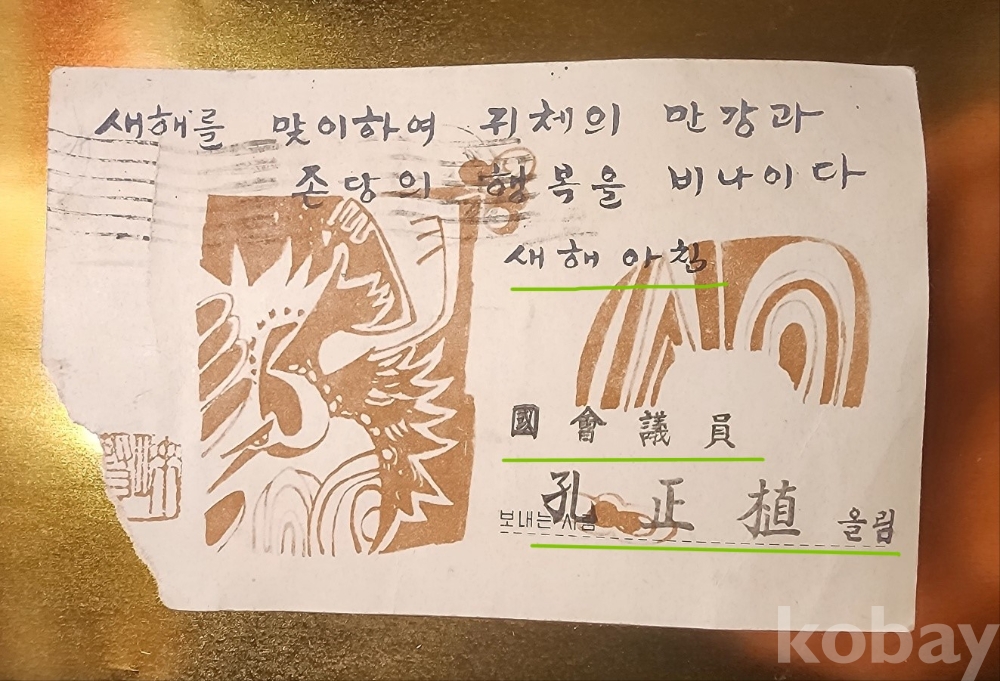 새해를 맞이하여 귀체의 만강과
존당의 행복을 비나이다
새해아침
國會議員
孔正植 올림
보내는 사람
kobay